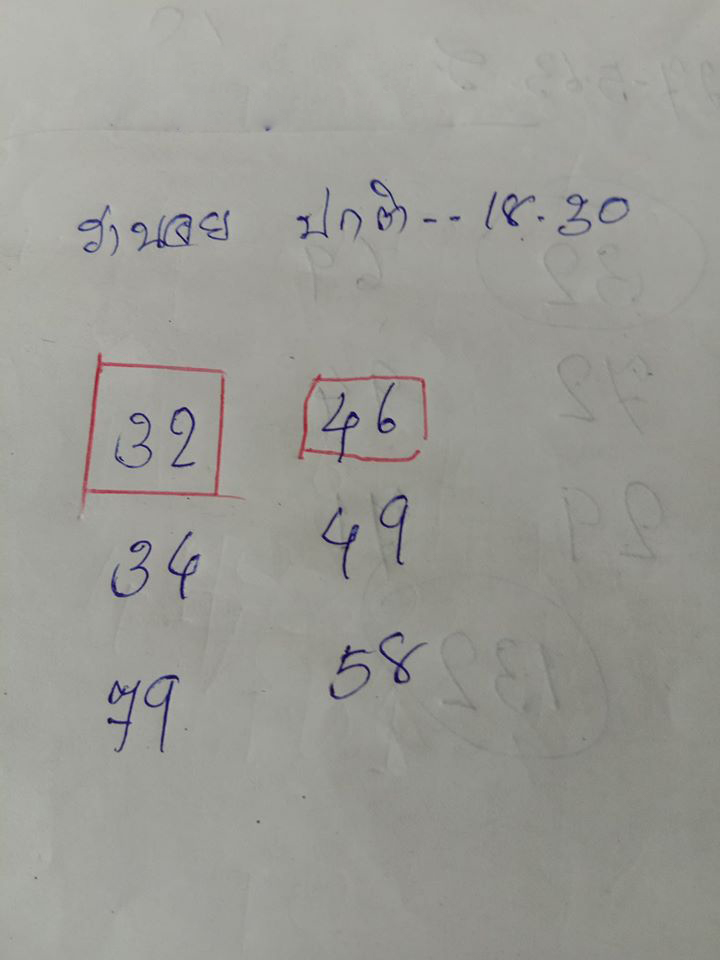 ฮานอย ปกติ -- 18.30
32 46
34 49
79 58